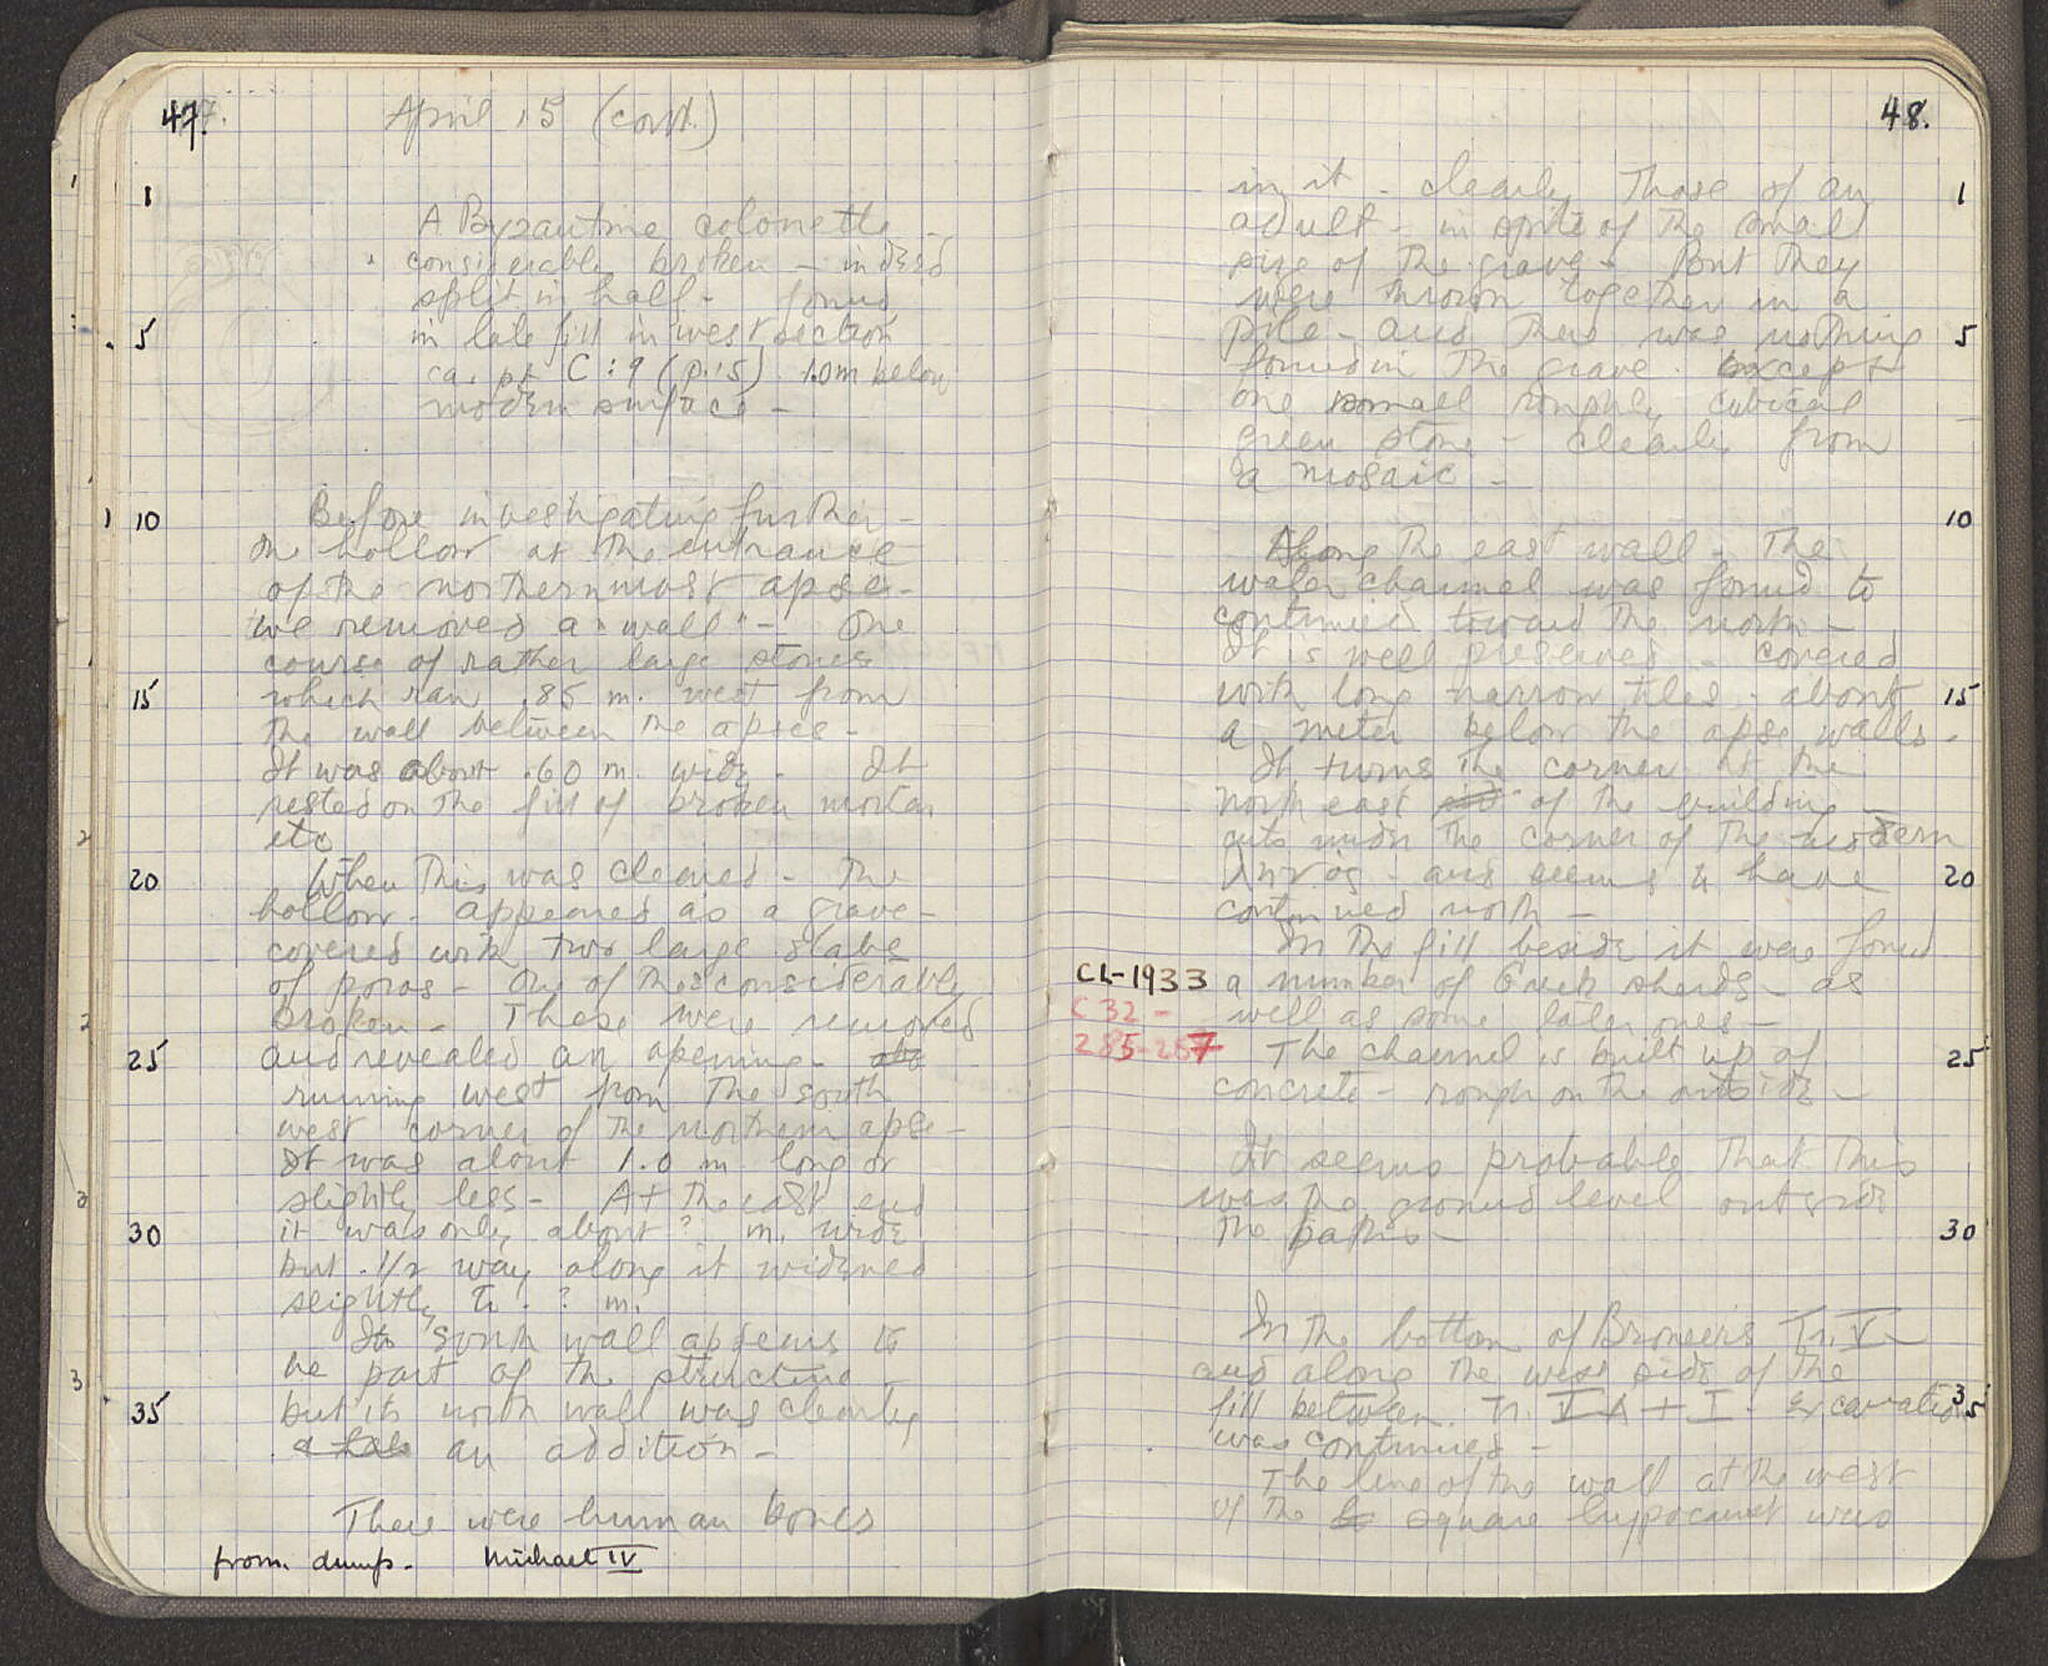 47.
April 15 (cont.)
1
A Byzantine colonette -
considerably broken - indeed
split in half - found
5 in late fill in west section
ca. pt C:9 (p.15) 1.0m below
modern surface -
10 Before investigating further -
the hollow at the entrance
of the northernmost apse -
we removed a "wall" - One
course of rather large stones
15 which ran .85 m. west from
the wall between the apses -
It was about .60 m. wide - It
rested on the fill of broken mortar
etc
20 When this was cleared - the
hollow - appeared as a grave -
covered with two large slabs
of poros - One of these considerably
broken - These were removed
25 and revealed an opening -
running west from the south
west corner of the northern apse -
It was about 1.0 m long or
slightly less - At the east end
30 it was only about ? m. wide
but 1/2 way along it widened
slightly to . ? m.
Its south wall appears to
be part of the structure -
35 but its north wall was clearly
an addition -
There were human bones
from dump. Michael IV
48.
in it - clearly those of an 1
adult - in spite of the small
size of the grave - But they
were thrown together in a
pile - and there was nothing 5
found in the grave except
one small roughly cubical
green stone - clearly from
a mosaic -
10
Along the east wall - the
water channel was found to
continued toward the north -
It is well preserved - covered
with long narrow tiles - about 15
a meter below the apse walls -
It turns the corner at the
north east of the building -
cuts under the corner of the modern
and seems to have 20
continued north -
In the fill beside it were found
CL-1933 a number of Greek sherds - as
C 32 - well as some later ones -
285-287 The channel is built up of 25
concrete - rough on the outside -
It seems probable that this
was the ground level outside
the baths - 30
In the bottom of Broneer's Tr. V -
and along the west side of the
fill between Tr. V A + I - excavation 35
was continued -
The line of the wall at the west
of the square hypocaust was